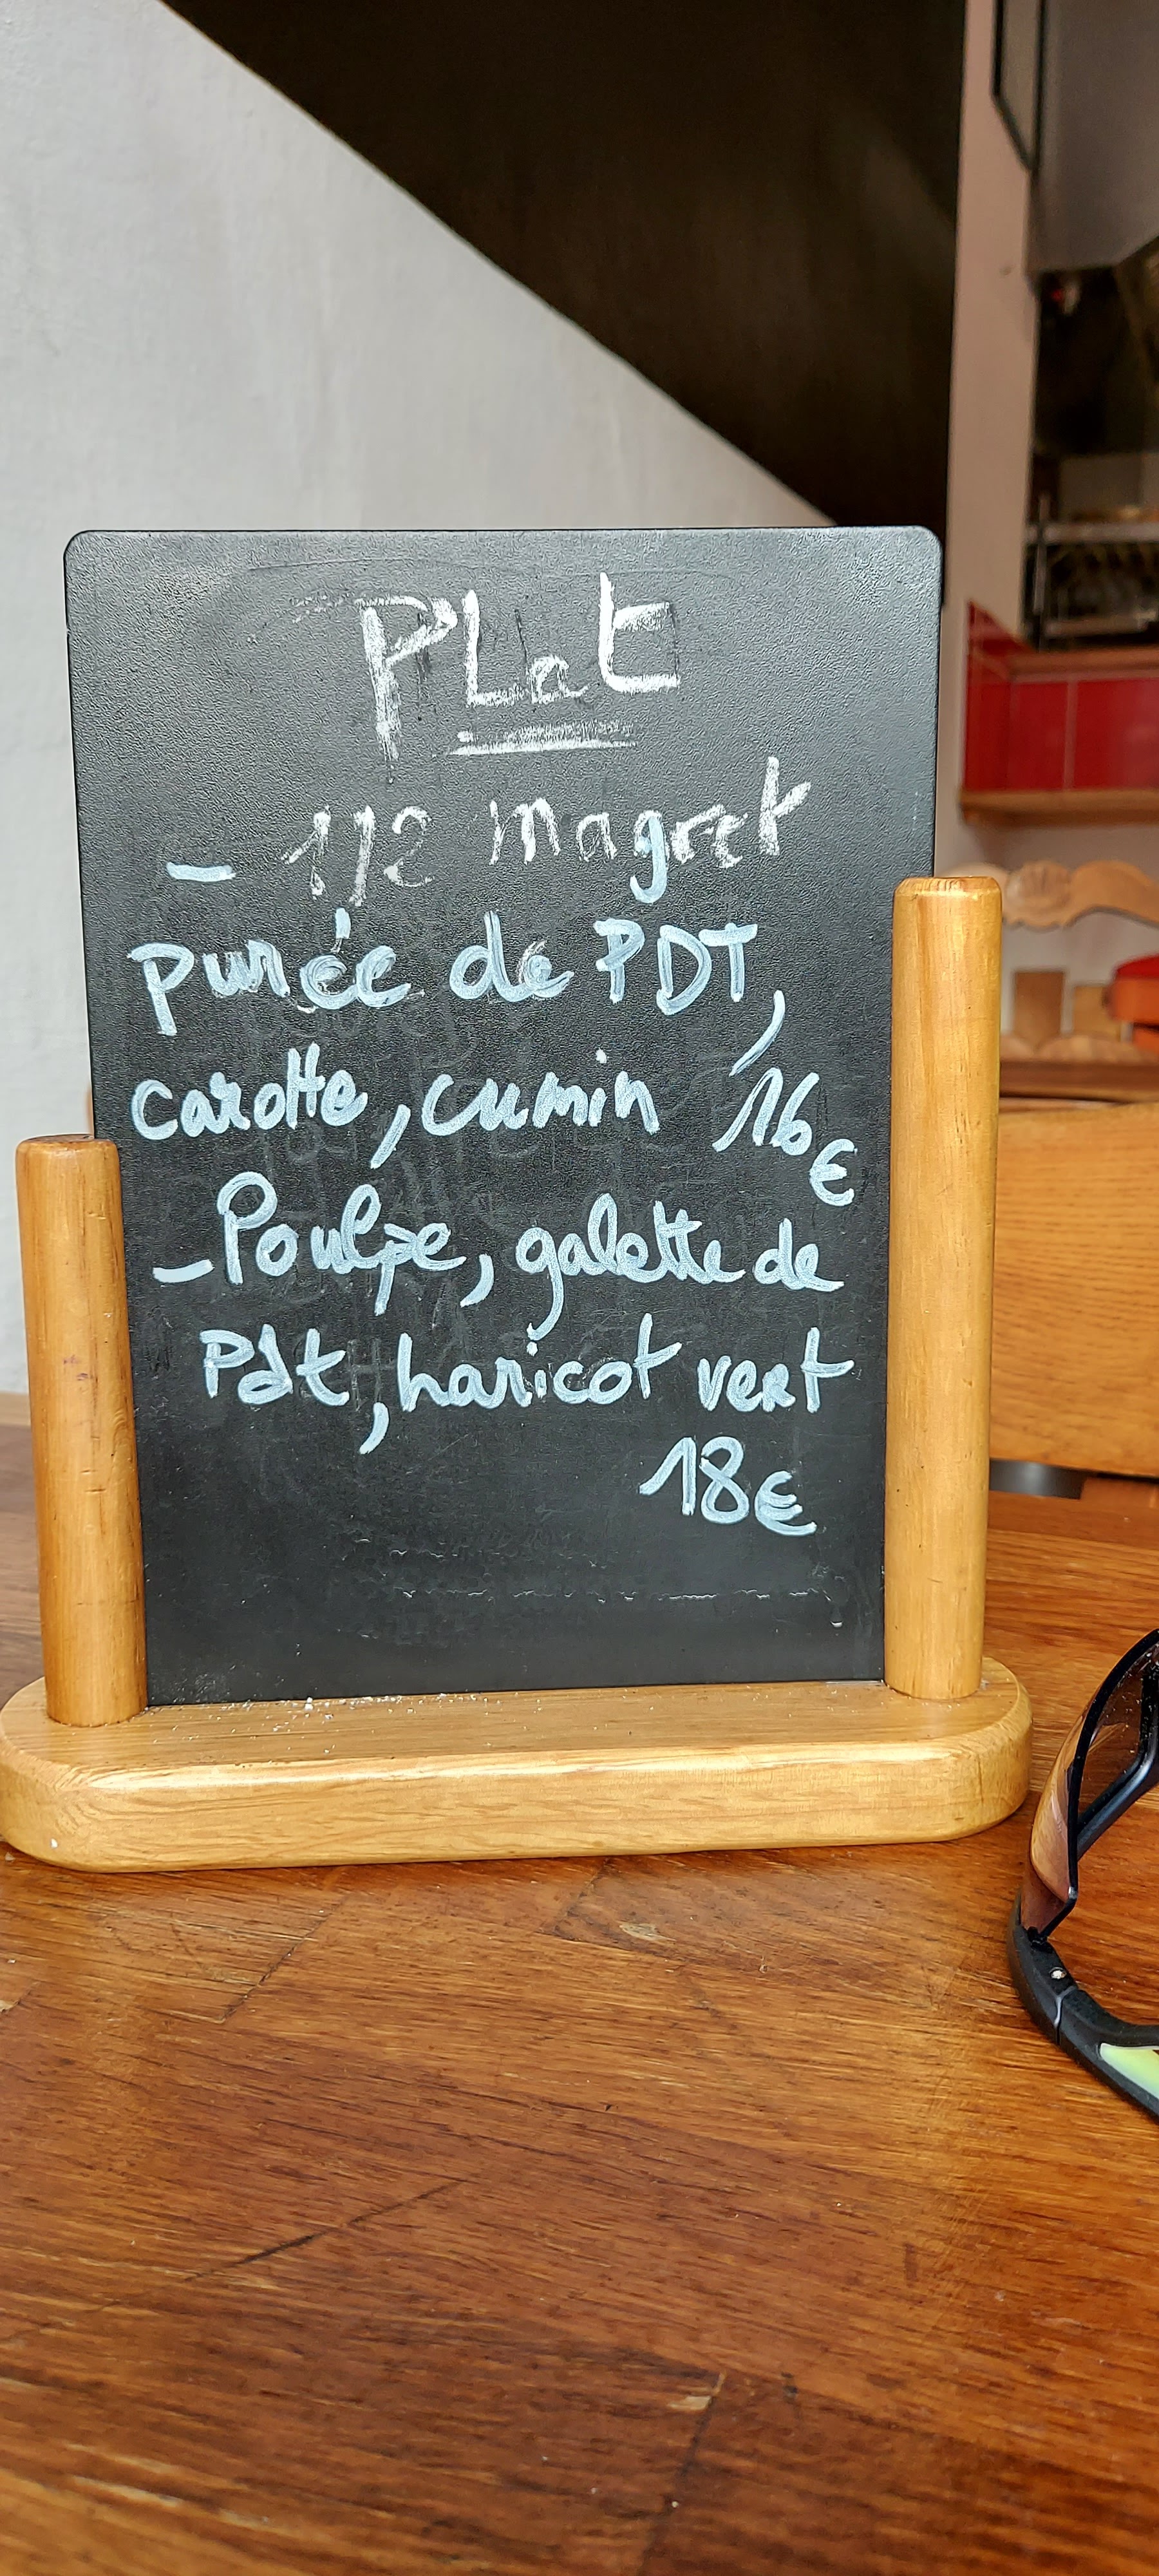 PLat
- 1/2 magret
purée de PDT,
carotte, cumin 16€
- Poulpe, galette de
Pdt, haricot vert
18€